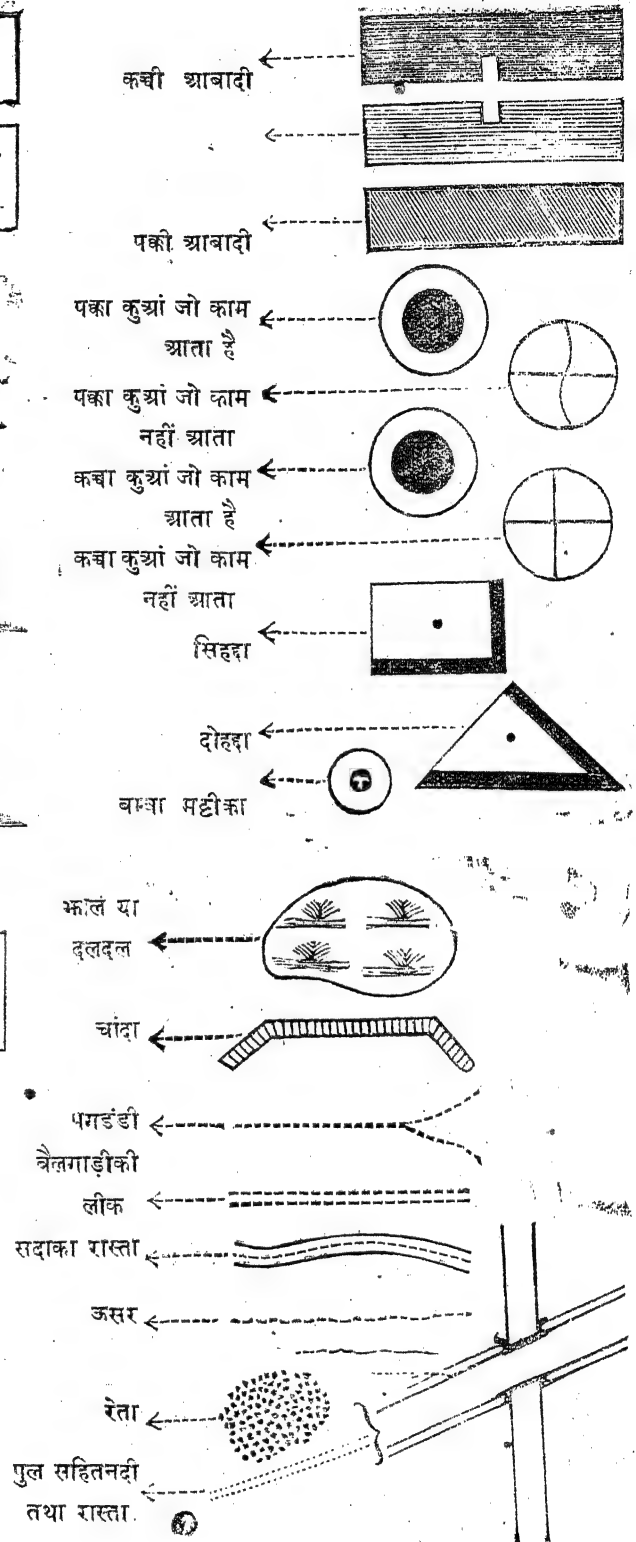 कच्ची आबादी
पक्की आबादी
पक्का कुआं जो काम
आता है
पक्का कुआं जो काम
नहीं आता
कच्चा कुआं जो काम
आता है
कच्चा कुआं जो काम
नहीं आता
सिहद्दा
दोहद्दा
बम्बा मट्टीका
झील या
दलदल
चांदा
पगडंडी
बैलगाड़ीकी
लीक
सदाका रास्ता
ऊसर
रेता
पुल सहितनदी
तथा रास्ता.